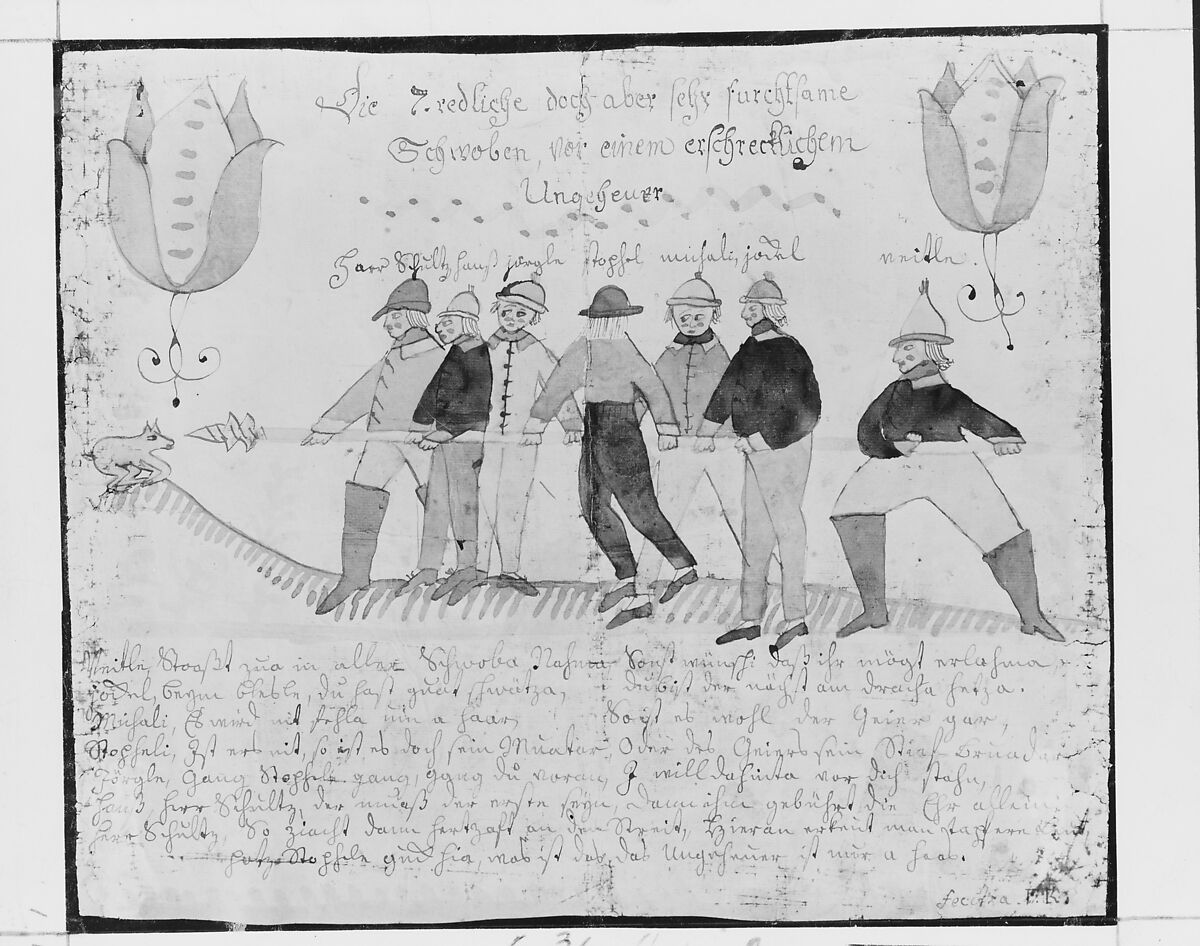 Die 7. redliche doch aber sehr furchtsame
Schwoben, vor einem erschrecklichem
Ungeheuer
Herr Schultz, hanß jörgle stophel michali, jockel veitle.
Veitle, Stooßt zua in aller Schwoba Nahma Sonst wünsch i daß ihr mögt erlahma
jockel, beym blesle, du hast guat schwätza, du bist der nächst am dracha hetza.
Michali, Es wird nit fehla um a haar So ist es wohl der Geier gar,
Stopheli, Ist er's nit, so ist es doch sein Muatar, Oder des Geiers sein Stiaf bruadar
Jörgle, Gang Stophele gang, gang du voran, I will dahinta vor dich stahn,
hanß, Herr Schultz, der muaß der erste seyn, dann ihm gebührt die Ehr allein
herr Schultz, So ziacht dann hertzaft an den Streit, Hieran erkent man tapfere
potz Stophele guck hia, was ist das, das Ungeheuer ist nur a haas.
fecit F. K.